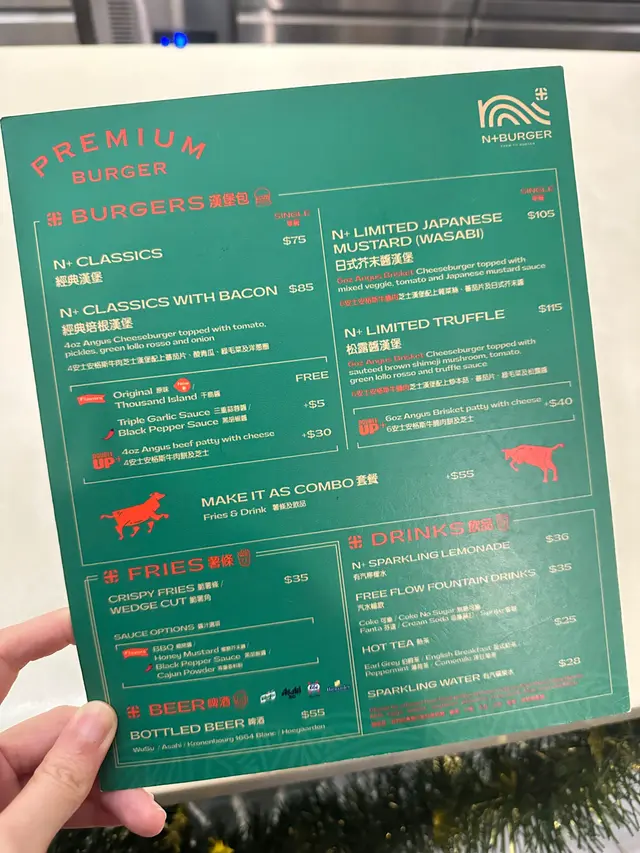 PREMIUM
BURGER
N+BURGER
BURGERS 漢堡包
SINGLE
N+ CLASSICS $75
經典漢堡
N+ CLASSICS WITH BACON $85
經典培根漢堡
4oz Angus Cheeseburger topped with tomato,
pickles, green lollo rosso and onion
4安士安格斯牛肉芝士漢堡配上蕃茄片、酸青瓜、綠毛菜及洋蔥圈
Original 原味 /
Thousand Island 千島醬 FREE
Triple Garlic Sauce 三重蒜蓉醬 /
Black Pepper Sauce 黑胡椒醬 +$5
UP
4oz Angus beef patty with cheese +$30
4安士安格斯牛肉餅及芝士
SINGLE
N+ LIMITED JAPANESE
MUSTARD (WASABI) $105
日式芥末醬漢堡
6oz Angus Brisket Cheeseburger topped with
mixed veggie, tomato and Japanese mustard sauce
6安士安格斯牛腩肉芝士漢堡配上雜菜絲、蕃茄片及日式芥末醬
N+ LIMITED TRUFFLE $115
松露醬漢堡
6oz Angus Brisket Cheeseburger topped with
sauteed brown shimeji mushroom, tomato,
green lollo rosso and truffle sauce
UP
6oz Angus Brisket patty with cheese +$40
6安士安格斯牛腩肉餅及芝士
MAKE IT AS COMBO 套餐 +$55
Fries & Drink 薯條及飲品
FRIES 薯條
CRISPY FRIES 脆薯條 /
WEDGE CUT 脆薯角 $35
SAUCE OPTIONS 醬汁選項
BBQ 燒烤醬 /
Honey Mustard 蜜糖芥末醬 /
Black Pepper Sauce 黑胡椒醬 /
Cajun Powder
BEER 啤酒
BOTTLED BEER 啤酒 $55
WuSu / Asahi / Kronenbourg 1664 Blanc / Hoegaarden
DRINKS 飲品
N+ SPARKLING LEMONADE $36
有汽檸檬水
FREE FLOW FOUNTAIN DRINKS $35
汽水暢飲
Coke 可樂 / Coke No Sugar 無糖可樂 /
Fanta 芬達 / Cream Soda 忌廉梳打 / Sprite 雪碧
HOT TEA 熱茶 $25
Earl Grey 伯爵茶 / English Breakfast 英式早茶 /
Peppermint 薄荷茶 / Camomile 洋甘菊茶
SPARKLING WATER 有汽礦泉水 $28